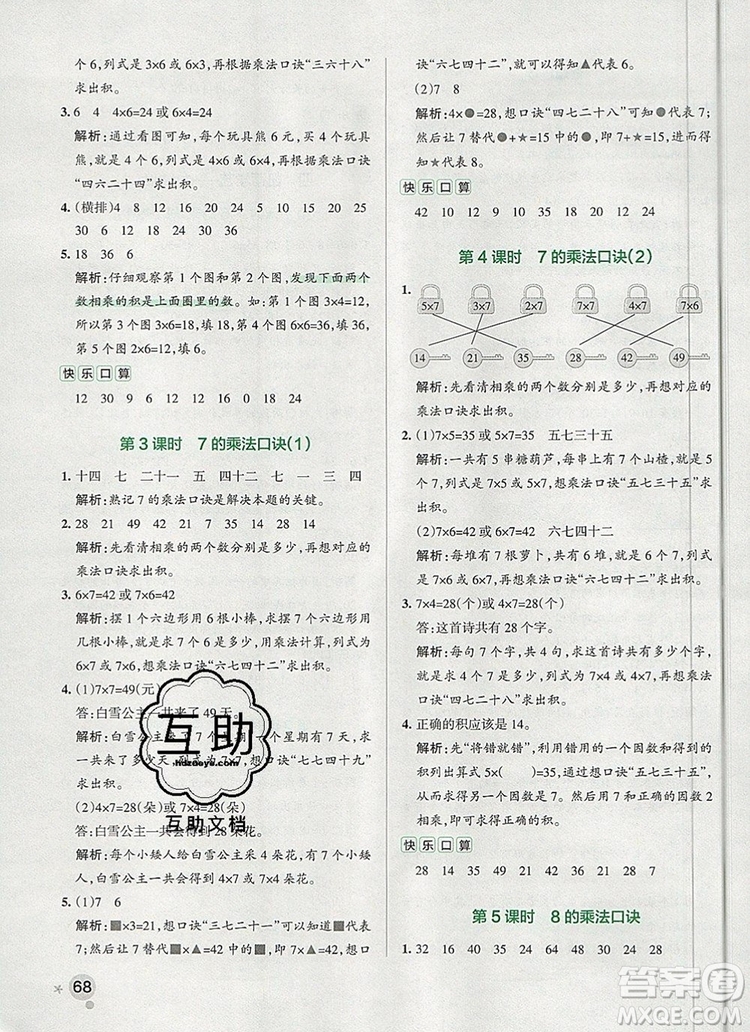 个 6,列式是 3×6 或 6×3,再根据乘法口诀“三六十八”
求出积。
3. 6 4 4×6=24 或 6×4=24
解析:通过看图可知,每个玩具熊 6 元,买 4 个玩具
熊,就是 4 个 6,列式是 4×6 或 6×4,再根据乘法口诀
“四六二十四”求出积。
4. (横排)4 8 12 16 20 24 5 10 15 20 25
30 6 12 18 24 30 36
5. 18 36 6
解析:仔细观察第 1 个图和第 2 个图,发现下面两个
数相乘的积是上面圈里的数。如:第 1 个图 3×4=12,
所以第 3 个图 3×6=18,填 18;第 4 个图 6×6=36,填 36,
第 5 个图 2×3=6,填 6。
快乐口算
12 30 9 6 12 12 16 0 18 24
第 3 课时 7 的乘法口诀(1)
1. 十四 七 二十一 五 四十二 七 一 三 四
解析:熟记 7 的乘法口诀是解决本题的关键。
2. 28 21 49 42 7 35 14 28 14 21
解析:先看清相乘的两个数分别是多少,再想对应的
乘法口诀求出积。
3. 6×7=42 或 7×6=42
解析:摆 1 个六边形用 6 根小棒,求摆 7 个六边形用
几根小棒,就是求 7 个 6 是多少,用乘法计算,列式为
6×7 或 7×6,再想乘法口诀“六七四十二”求出积。
4. (1)7×7=49(元)
答:白雪公主一共来了 49 天。
解析:白雪公主来了 7 个星期,一个星期有 7 天,求一
共来了多少天,列式是 7×7,想乘法口诀“七七四十九”
求出积。
(2)4×7=28(朵)或 7×4=28(朵)
答:白雪公主一共会得到 28 朵花。
解析:每个小矮人给白雪公主采 4 朵花,7 个小矮人
就是 7 个 4,列式是 4×7 或 7×4,想口诀“四七二十八”
求出积。
5. (1)7 6
解析:■×3=21,想口诀“三七二十一”可以知道■代表
7;然后让 7 替代■×▲=42 中的■,即 7×▲=42,想口
68
诀“六七四十二”,就可以得知▲代表 6。
(2)7 8
解析:4×●=28,想口诀“四七二十八”可以知道●代表 7;
然后让 7 替代●+★=15 中的●,即 7+★=15,可得知
★代表 8。
快乐口算
42 10 12 9 10 35 18 20 12 24
第 4 课时 7 的乘法口诀(2)
1.
5×7 3×7 2×7 4×7 3×7 7×6
14 21 35 28 42 49
解析:先看清相乘的两个数分别是多少,再想对应的
乘法口诀求出积。
2. (1)7×5=35 或 5×7=35 五七三十五
解析:一共有 5 串糖葫芦,每串都有 7 个山楂,就是
5 个 7,列式是 7×5 或 5×7,再想口诀“五七三十五”求
出积。
(2)7×6=42 或 6×7=42 六七四十二
解析:每堆有 7 根萝卜,有 6 堆,就是 6 个 7,列式
是 7×6 或 6×7,再想口诀“六七四十二”求出积。
3. 7×4=28(个)或 4×7=28(个)
答:这首诗共有 28 个字。
解析:每句有 7 个字,共 4 句,求这首诗共有多少
个字,就是求 4 个 7 是多少,列式为 7×4 或 4×7,想
口诀“四七二十八”求出积。
4. 正确的积应该是 14。
解析:先“将错就错”,利用错的一个因数和错误的
积列出算式 5×( )=35,想口诀“五七三十五”,
可以知道另一个因数是 7,所以另一个因数是 7 没有
错,然后用另一个因数 7 和正确的因数 2 相乘,就
可以得到正确的积。
快乐口算
28 14 35 49 21 42 35 24 28 7
第 5 课时 8 的乘法口诀
1. 32 16 40 64 24 56 48 30 24 28
互助
hdzoeye.com
互助文档
答案圈
MXQE.COM